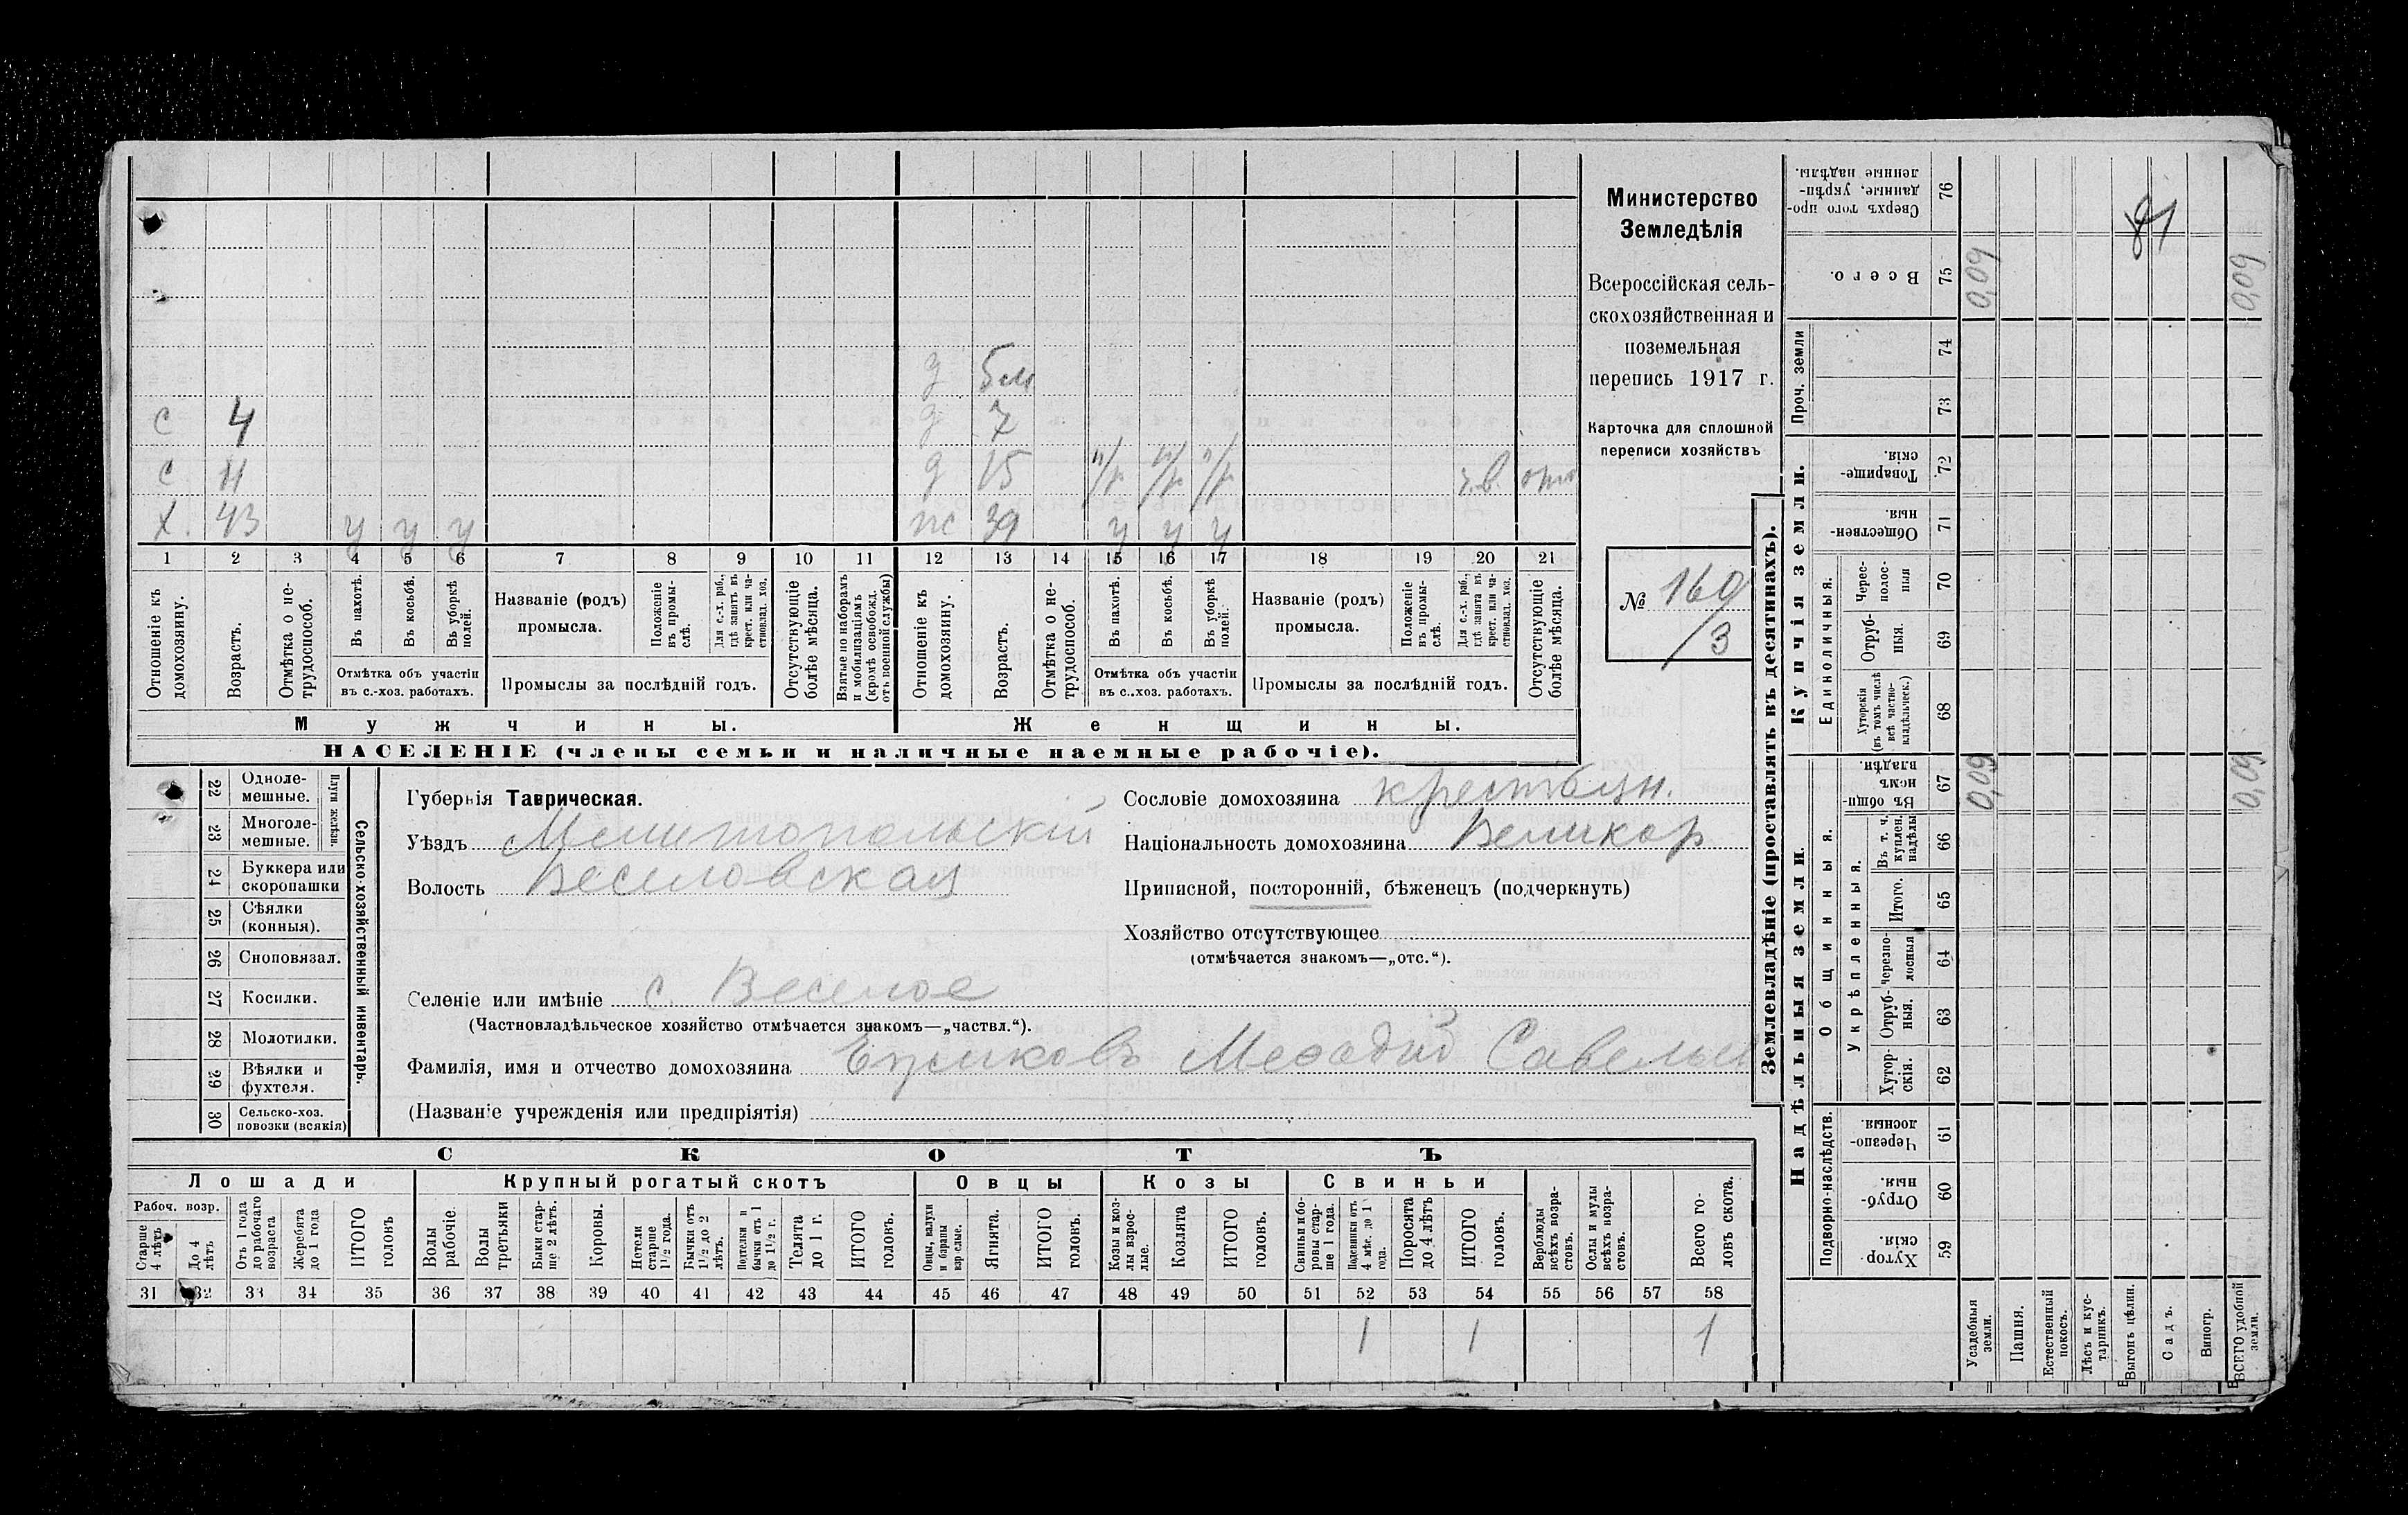 д 5 м
с 4 д 7
с 11 д 15 н/р н/р н/р ч.в. отс
х. 43 у у у ж 39 у у у
1 2 3 4 5 6 7 8 9 10 11 12 13 14 15 16 17 18 19 20 21
Отношеніе къ домохозяину.
Возрастъ.
Отмѣтка о нетрудоспособ.
Въ пахотѣ.
Въ косьбѣ.
Въ уборкѣ полей.
Отмѣтка объ участіи
въ с.-хоз. работахъ.
Названіе (родъ)
промысла.
Положеніе въ промыслѣ.
Для с.-х. раб., гдѣ занятъ въ крест. или частновлад. хоз.
Промыслы за послѣдній годъ.
Отсутствующіе болѣе мѣсяца.
Взятые по наборамъ и мобилизаціямъ (кромѣ освобожд. отъ военной службы)
Отношеніе къ домохозяину.
Возрастъ.
Отмѣтка о нетрудоспособ.
Въ пахотѣ.
Въ косьбѣ.
Въ уборкѣ полей.
Отмѣтка объ участіи
въ с..хоз. работахъ.
Названіе (родъ)
промысла.
Положеніе въ промыслѣ.
Для с.-х. раб., гдѣ занята въ крест. или частновлад. хоз.
Промыслы за послѣдній годъ.
Отсутствующіе болѣе мѣсяца.
Мужчины.
Женщины.
НАСЕЛЕНІЕ (члены семьи и наличные наемные рабочіе).
Министерство
Земледѣлія
Всероссійская сель-
скохозяйственная и
поземельная
перепись 1917 г.
Карточка для сплошной
переписи хозяйствъ
№ 160
/3
22 Одноле-
мешные.
23 Многоле-
мешные.
Плуги желѣзн.
24 Буккера или
скоропашки
25 Сѣялки
(конныя).
26 Сноповязал.
27 Косилки.
28 Молотилки.
29 Вѣялки и
фухтеля.
30 Сельско-хоз.
повозки (всякія)
Сельско-хозяйственный инвентарь.
Губернія Таврическая.
Уѣздъ Мелитопольскій
Волость Веселовская
Сословіе домохозяина крестьян.
Національность домохозяина Великор
Приписной, посторонній, бѣженецъ (подчеркнуть)
Хозяйство отсутствующее
(отмѣчается знакомъ—„отс.“).
Селеніе или имѣніе с. Веселое
(Частновладѣльческое хозяйство отмѣчается знакомъ—„частвл.“).
Фамилія, имя и отчество домохозяина Савельев
(Названіе учрежденія или предпріятія)
СКОТЪ
Лошади Крупный рогатый скотъ Овцы Козы Свиньи
Рабоч. возр.
Старше 4 лѣтъ
До 4 лѣтъ
Отъ 1 года до рабочаго возраста
Жеребята до 1 года
ИТОГО головъ
Волы рабочіе.
Волы третьяки
Быки старше 2 лѣтъ.
Коровы.
Нетели старше 1½ года.
Бычки отъ 1½ до 2 лѣтъ.
Подтелки и бычки отъ 1 до 1½ г.
Телята до 1 г.
ИТОГО головъ.
Овцы, валухи и бараны взрослые.
Ягнята.
ИТОГО головъ.
Козы и козлы взрослые.
Козлята
ИТОГО головъ.
Свиньи и боровы старше 1 года.
Подсвинки отъ 4 мѣс. до 1 года.
Поросята до 4 лѣтъ
ИТОГО головъ.
Верблюды всѣхъ возрастовъ.
Ослы и мулы всѣхъ возрастовъ.
Всего головъ скота.
31 32 33 34 35 36 37 38 39 40 41 42 43 44 45 46 47 48 49 50 51 52 53 54 55 56 57 58
1 1 1
Землевладѣніе (проставлять въ десятинахъ).
Купчія земли.
Надѣльныя земли.
Сверхъ того проданные, укрѣпленные надѣлы. 76
Всего. 75 0,09 0,09
Проч. земли
74
73
Товарищескія. 72
Общественныя. 71
Единоличныя.
Чересполосныя 70
Отрубныя. 69
Хуторскія (въ томъ числѣ всѣ частновладѣльческ.) 68
Общинныя.
Въ общинномъ владѣн. 67 0,09 0,09
Укрѣпленныя.
Въ т. ч. куплен. надѣлы 66
Итого. 65
Черезполосныя 64
Отрубныя. 63
Хуторскія. 62
Подворно-наслѣдств.
Черезполосныя. 61
Отрубныя. 60
Хуторскія. 59
Усадебныя земли.
Пашня.
Естественный покосъ.
Лѣсъ и кустарникъ.
Выгонъ цѣлин.
Садъ.
Виногр.
ВСЕГО удобной земли.